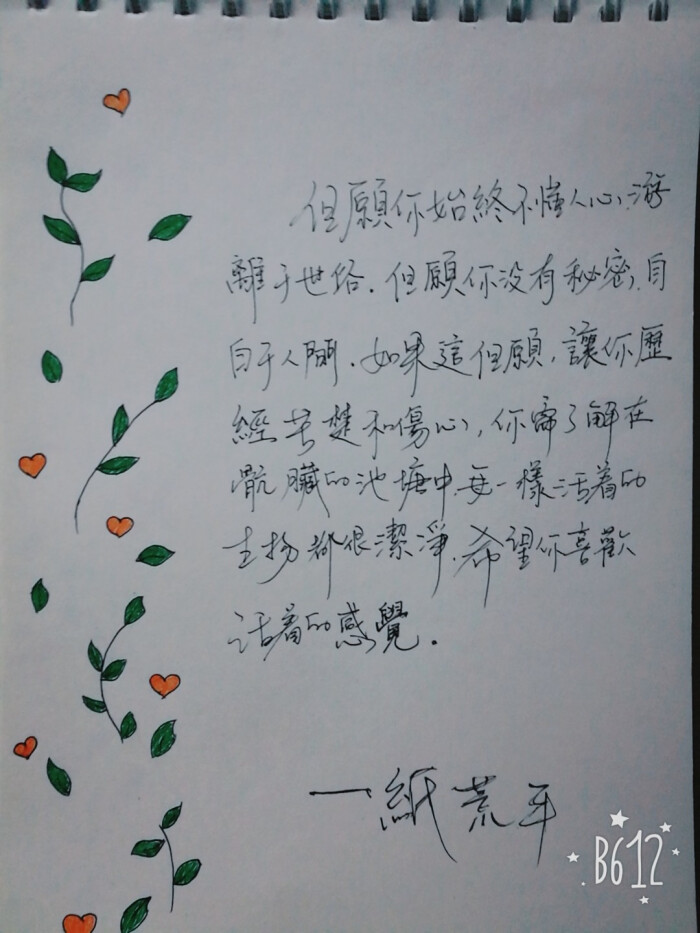 但願你始終不懂人心，游
離于世俗．但願你没有秘密，自
白于人間．如果這但願，讓你歷
經苦楚和傷心，你需了解在
骯臟的池塘中，每一樣活着的
生物都很潔淨．希望你喜歡
活着的感覺．
一紙荒年
B612